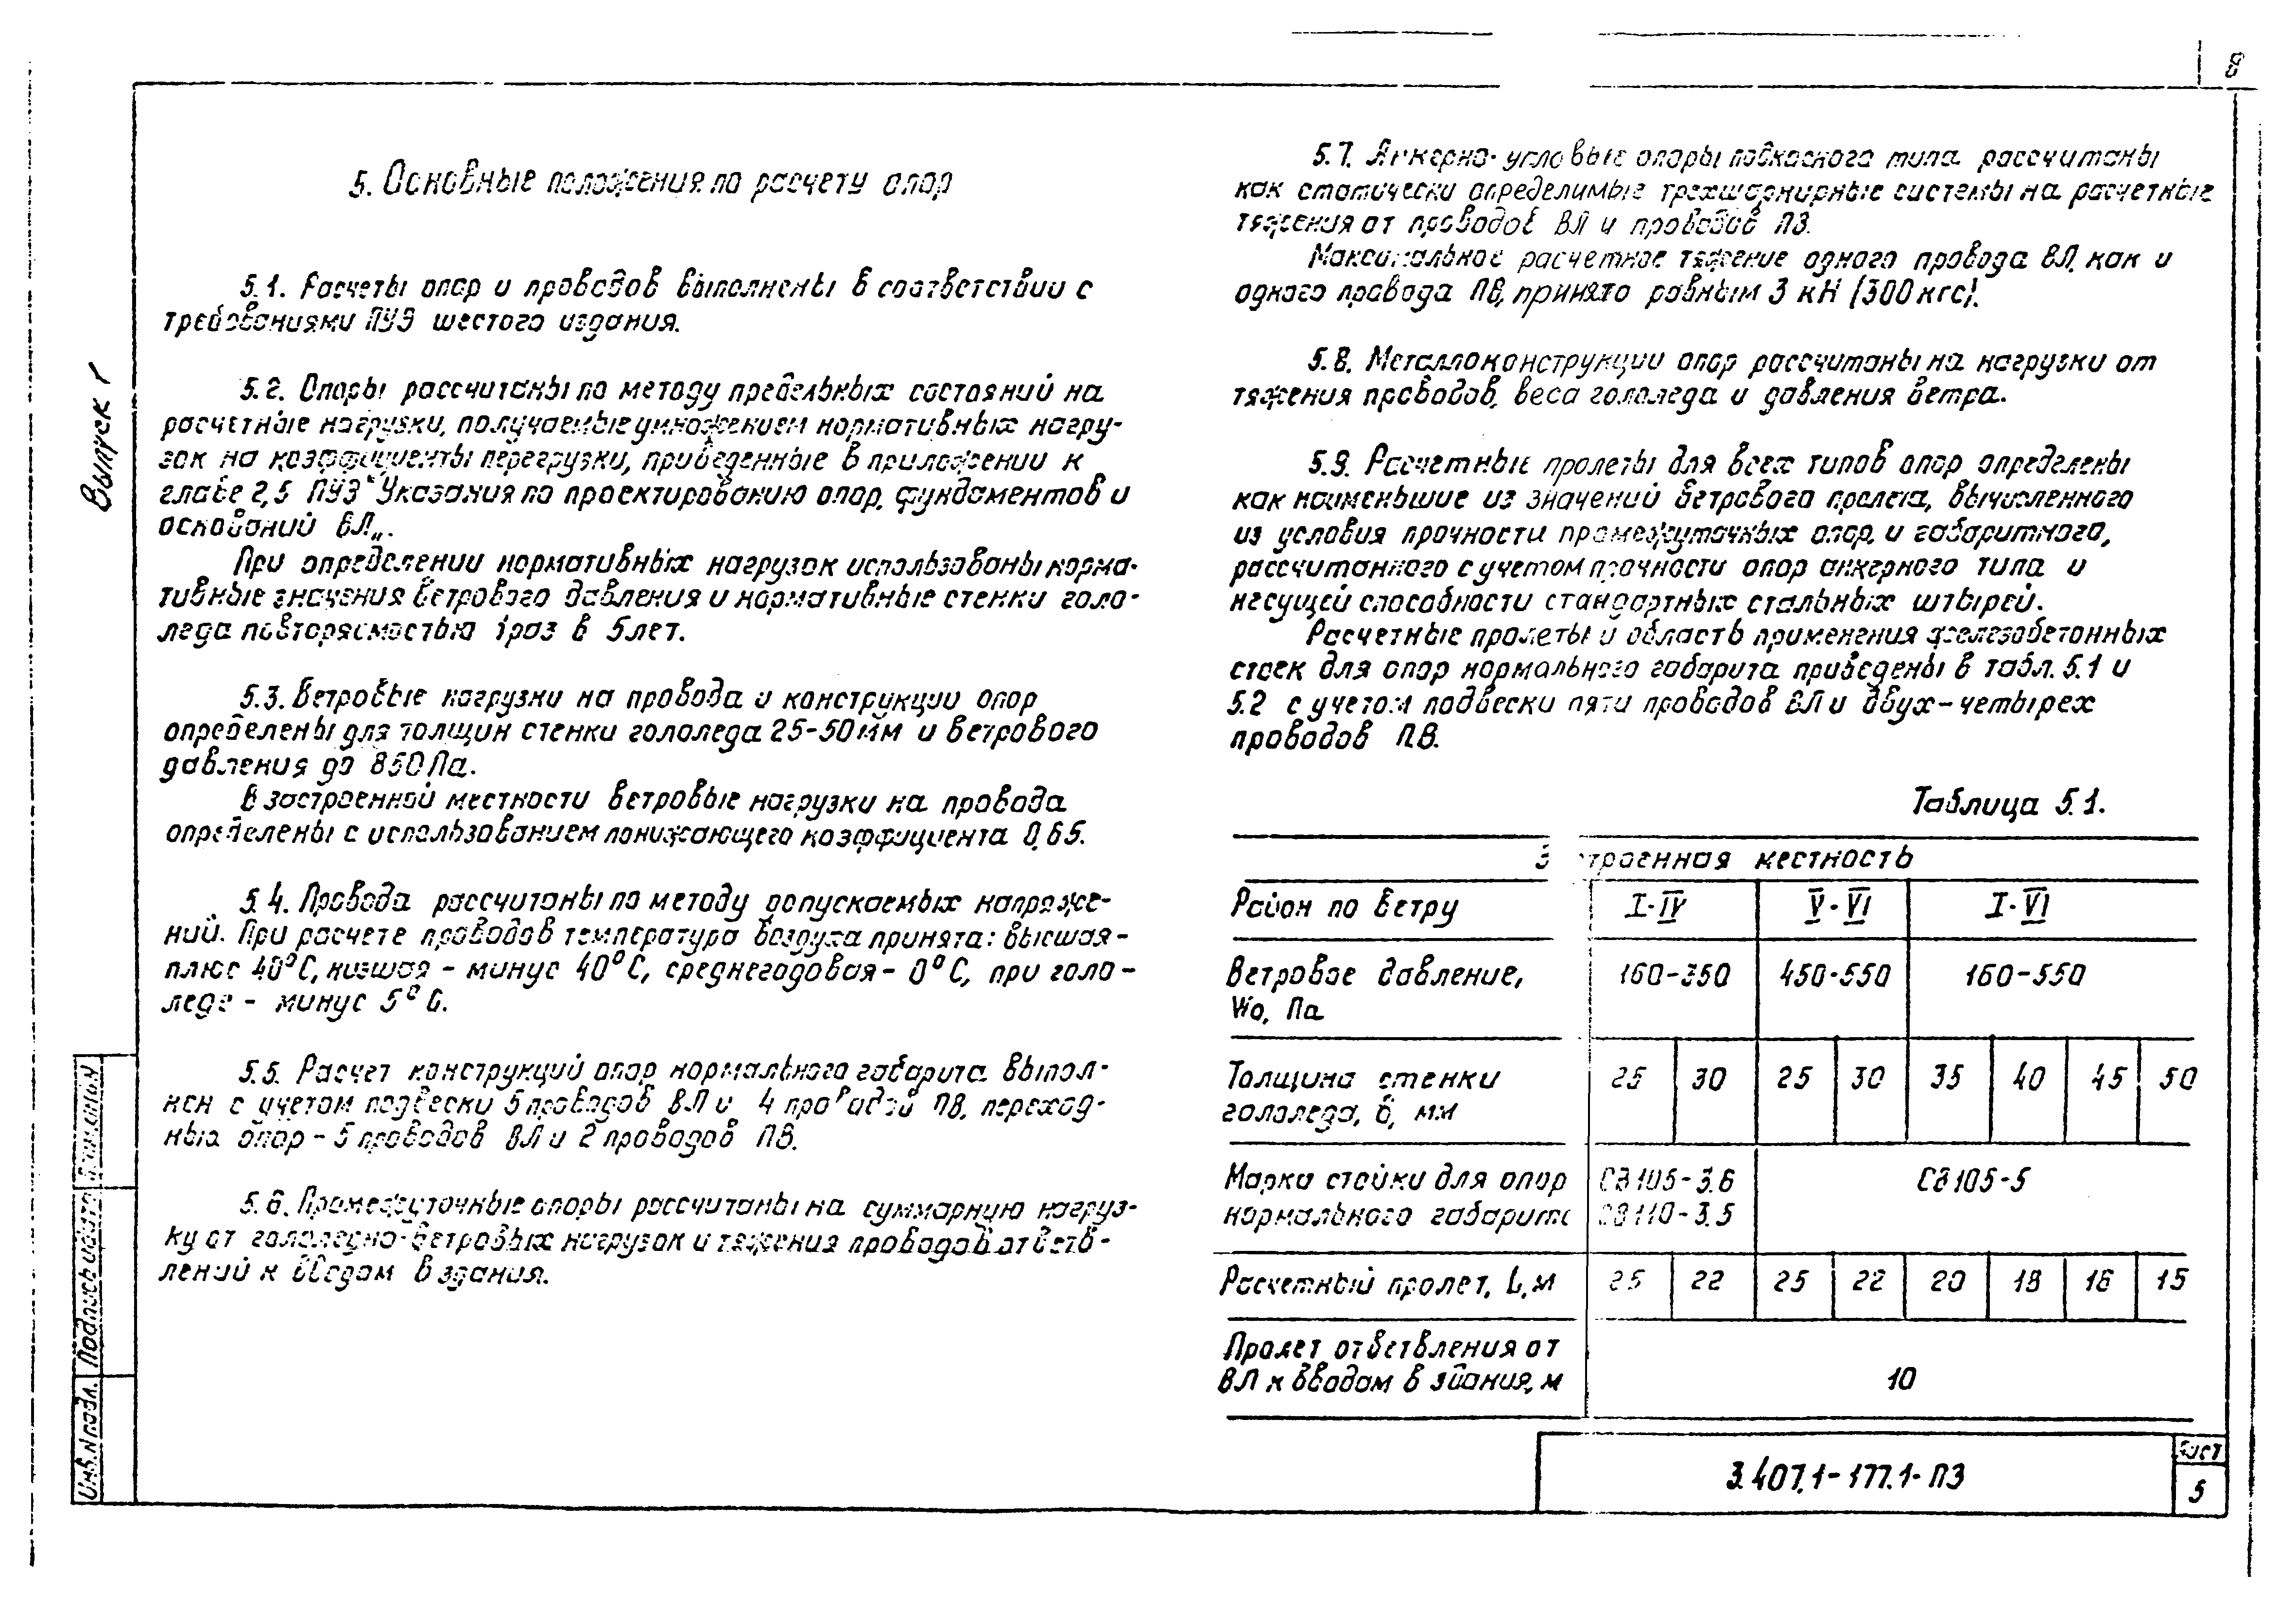 8
5. Основные положения по расчету опор
5.1. Расчеты опор и проводов выполнены в соответствии с
требованиями ПУЭ шестого издания.
5.2. Опоры рассчитаны по методу предельных состояний на
расчетные нагрузки, получаемые умножением нормативных нагру-
зок на коэффициенты перегрузки, приведенные в приложении к
главе 2,5 ПУЭ "Указания по проектированию опор, фундаментов и
оснований ВЛ„.
При определении нормативных нагрузок использованы норма-
тивные значения ветрового давления и нормативные стенки голо-
леда повторяемостью 1 раз в 5 лет.
5.3. Ветровые нагрузки на провода и конструкции опор
определены для толщин стенки гололеда 25-50 мм и ветрового
давления до 850 Па.
В застроенной местности ветровые нагрузки на провода
определены с использованием понижающего коэффициента 0,65.
5.4. Провода рассчитаны по методу допускаемых напряже-
ний. При расчете проводов температура воздуха принята: высшая-
плюс 40°С, низшая - минус 40°С, среднегодовая - 0°С, при голо-
леде - минус 5°С.
5.5. Расчет конструкций опор нормального габарита выпол-
нен с учетом подвески 5 проводов ВЛ и 4 проводов ПВ, переход-
ных опор - 5 проводов ВЛ и 2 проводов ПВ.
5.6. Промежуточные опоры рассчитаны на суммарную нагруз-
ку от гололедно-ветровых нагрузок и тяжения проводов ответв-
лений к вводам в здания.
5.7. Анкерно-угловые опоры подкосного типа рассчитаны
как статически определимые трехшарнирные системы на расчетные
тяжения от проводов ВЛ и проводов ПВ.
Максимальное расчетное тяжение одного провода ВЛ, как и
одного провода ПВ, принято равным 3 кН (300 кгс).
5.8. Металлоконструкции опор рассчитаны на нагрузки от
тяжения проводов, веса гололеда и давления ветра.
5.9. Расчетные пролеты для всех типов опор определены
как наименьшие из значений ветрового пролета, вычисленного
из условия прочности промежуточных опор, и габаритного,
рассчитанного с учетом прочности опор анкерного типа и
несущей способности стандартных стальных штырей.
Расчетные пролеты и область применения железобетонных
стоек для опор нормального габарита приведены в табл. 5.1 и
5.2 с учетом подвески пяти проводов ВЛ и двух-четырех
проводов ПВ.
Таблица 5.1.
З троенная местность
Район по ветру I-IV V-VI I-VI
Ветровое давление, 160-350 450-550 160-550
Wo, Па
Толщина стенки 25 30 25 30 35 40 45 50
гололеда, б, мм
Марка стойки для опор СВ105-3.6 СВ105-5
нормального габарита СВ110-3.5
Расчетный пролет, L, м 25 22 25 22 20 18 16 15
Пролет ответвления от
ВЛ к вводам в здания, м 10
3.407.1-177.1-ПЗ
Лист
5
Выпуск 1
Инв. N подл. Подпись и дата